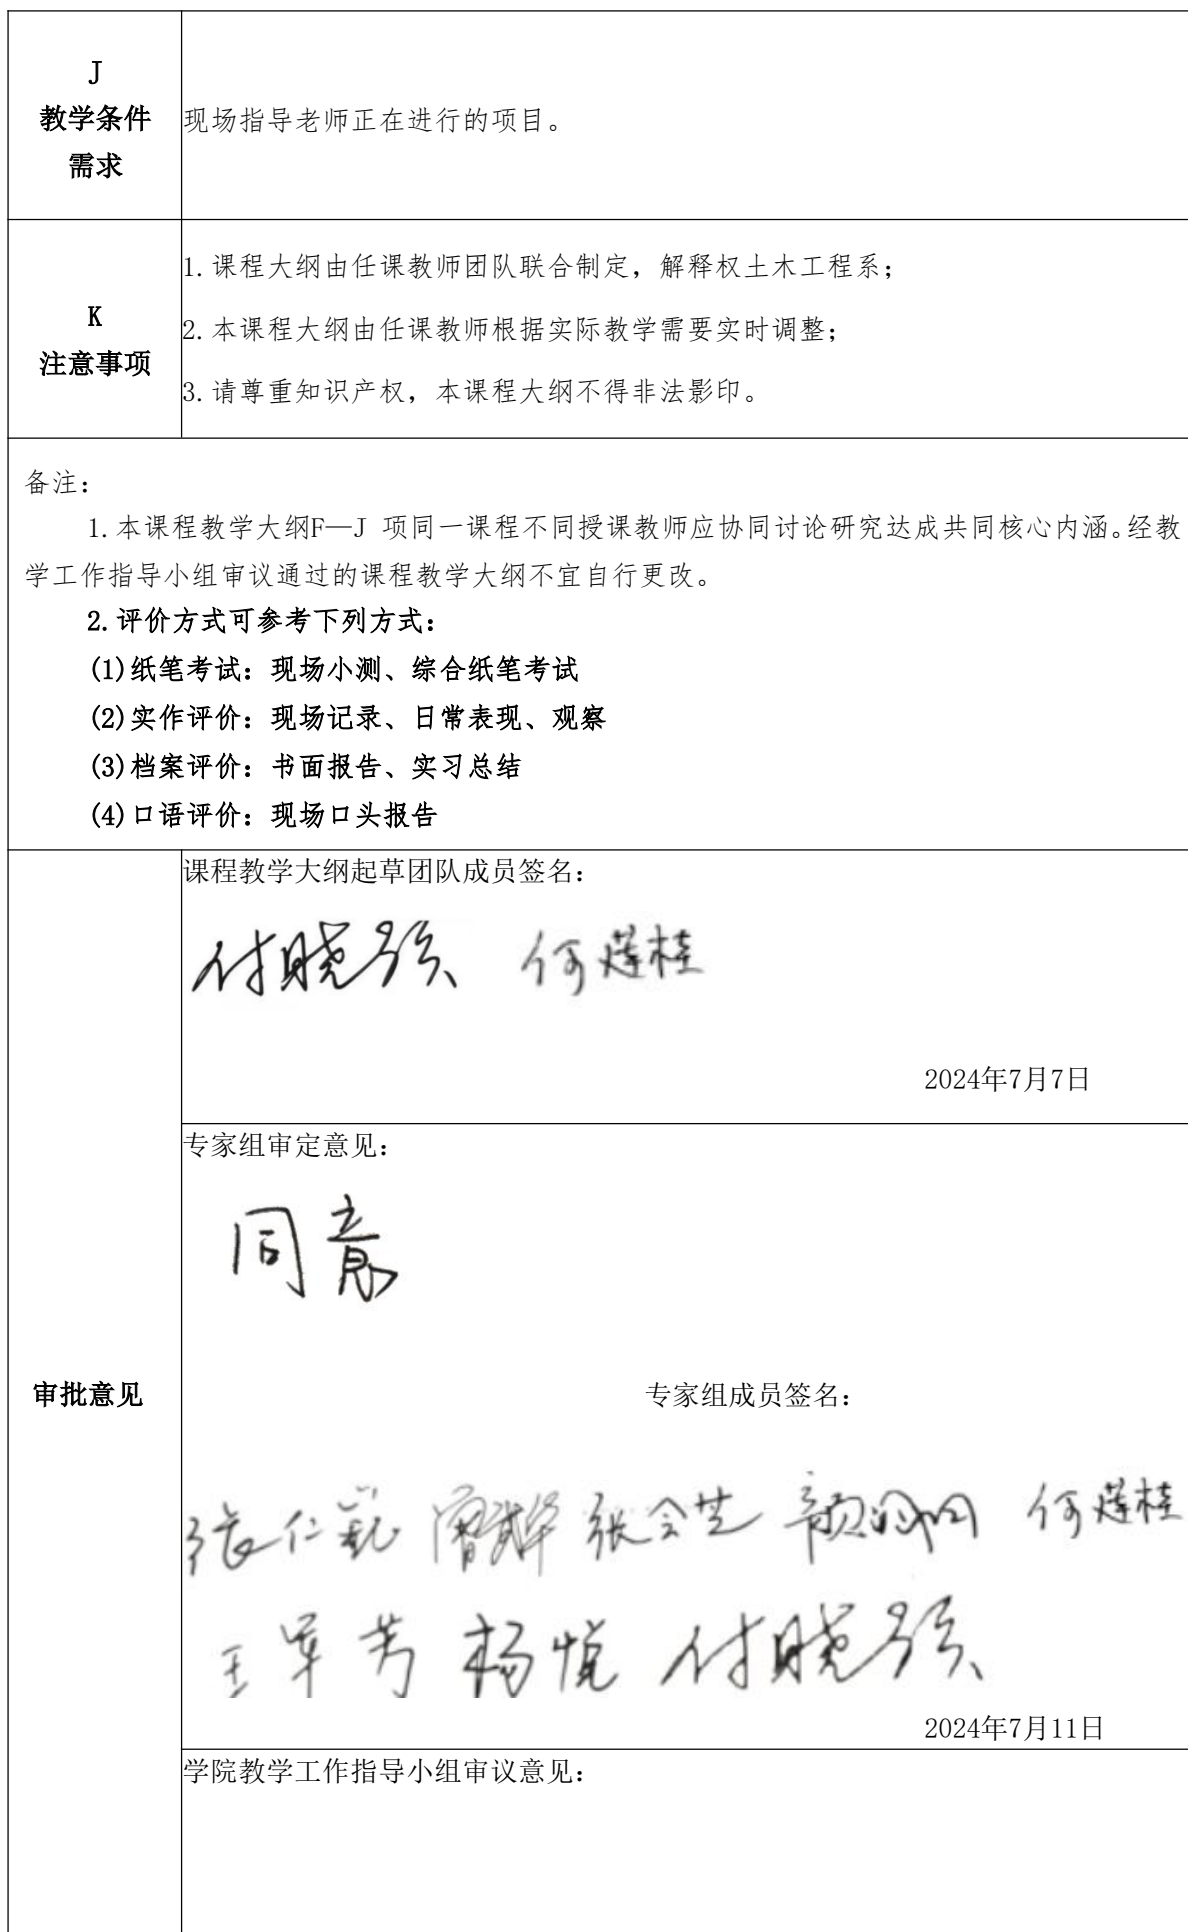 J
教学条件
需求
现场指导老师正在进行的项目。
K
注意事项
1.课程大纲由任课教师团队联合制定，解释权土木工程系；
2.本课程大纲由任课教师根据实际教学需要实时调整；
3.请尊重知识产权，本课程大纲不得非法影印。
备注：
1.本课程教学大纲F—J 项同一课程不同授课教师应协同讨论研究达成共同核心内涵。经教
学工作指导小组审议通过的课程教学大纲不宜自行更改。
2.评价方式可参考下列方式：
(1)纸笔考试：现场小测、综合纸笔考试
(2)实作评价：现场记录、日常表现、观察
(3)档案评价：书面报告、实习总结
(4)口语评价：现场口头报告
审批意见
课程教学大纲起草团队成员签名：
付晓强 何莲桂
2024年7月7日
专家组审定意见：
同意
专家组成员签名：
张仁 张会芝 颜 何莲桂
王军芳 杨悦 付晓强
2024年7月11日
学院教学工作指导小组审议意见：